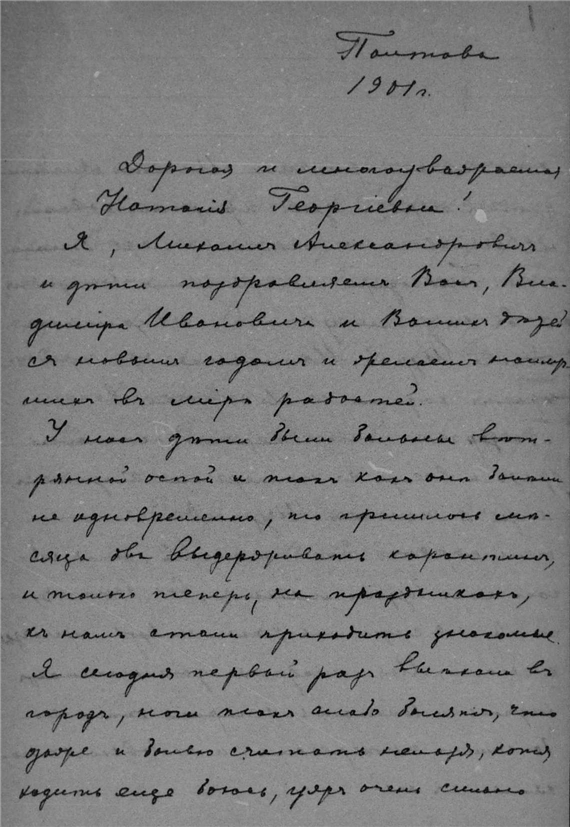 Полтава
1901 г.
Дорогая и многоуважаемая
Наталія Георгіевна!
Я, Михаилъ Александровичъ
и дѣти поздравляемъ Васъ, Вла-
диміра Ивановича и Вашихъ дѣтей
съ новымъ годомъ и желаемъ
въ мірѣ радостей.
У насъ дѣти были больны вѣт-
рянной оспой и такъ какъ они болѣли
не одновременно, то пришлось мѣ-
сяца два выдерживать карантинъ,
и только теперь, на праздникахъ,
къ намъ стали приходить знакомые.
Я сегодня первый разъ выѣхала въ
городъ, ноги такъ слабо болятъ, что
даже и болью считать нельзя, хотя
ходить еще боюсь, ужъ очень сильно